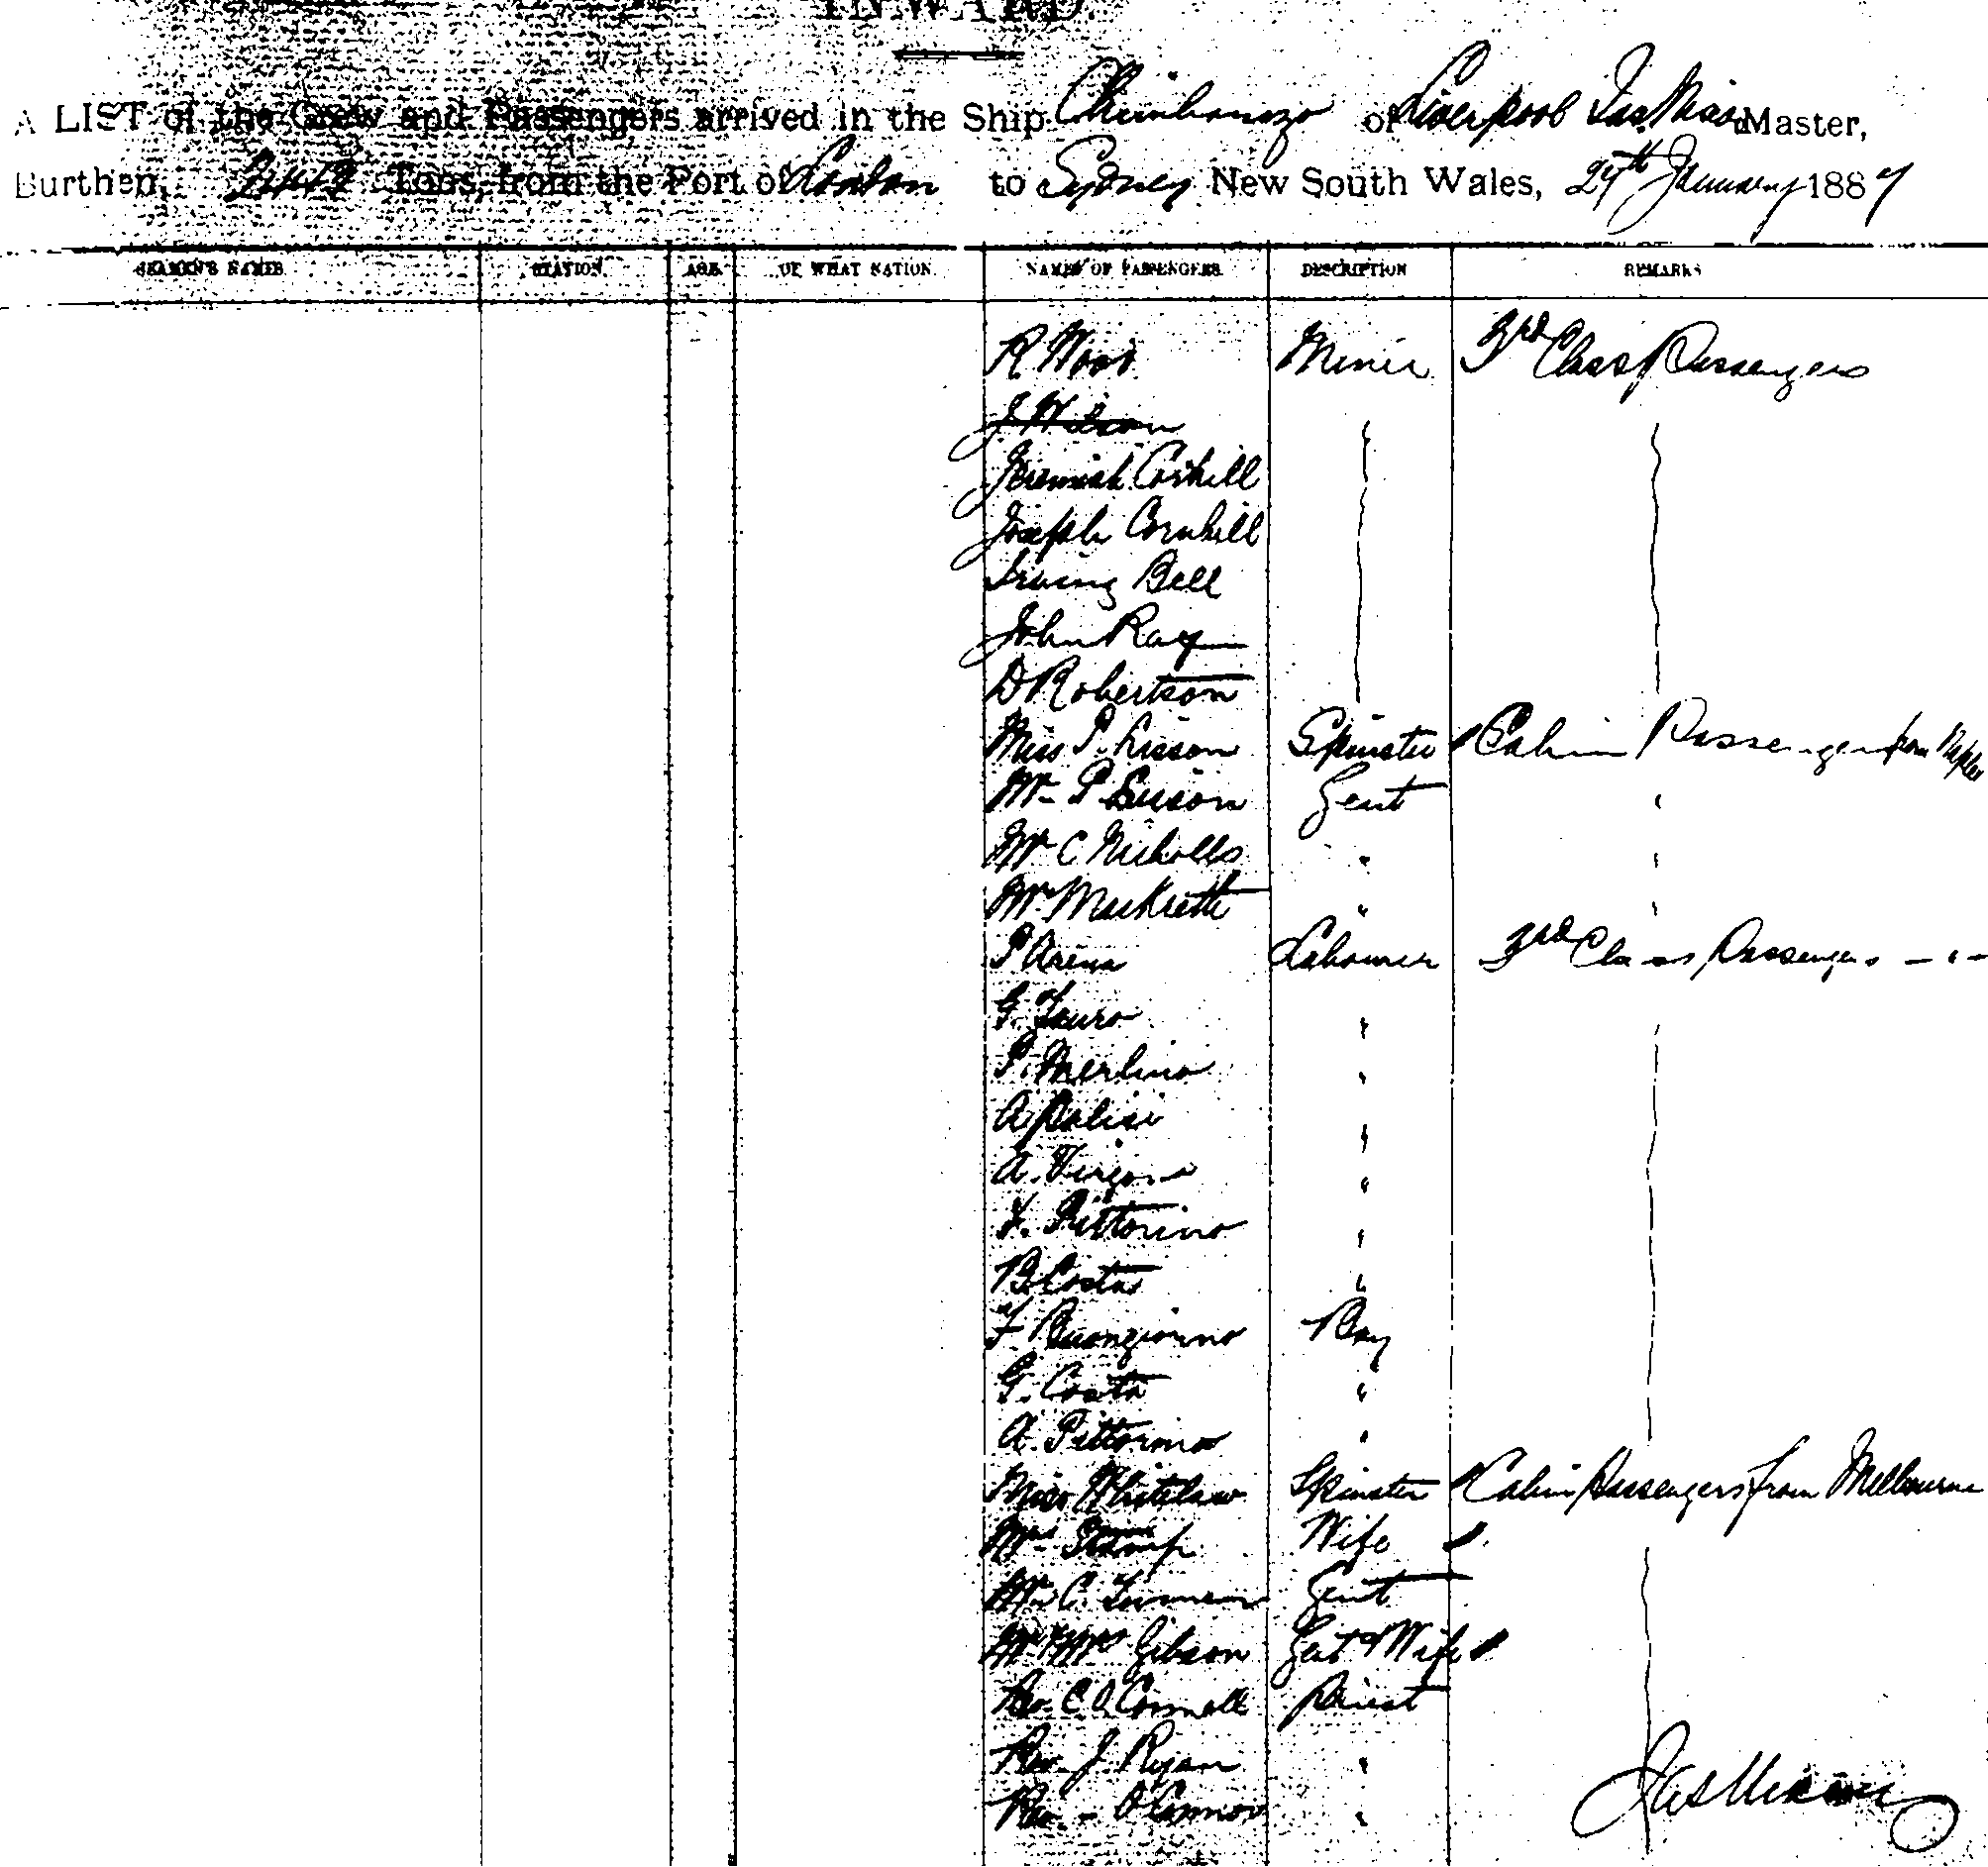 INWARD.
A LIST of the Crew and Passengers arrived in the Ship Chimborazo of Liverpool Jas. Master,
Burthen, Tons, from the Port of London to Sydney New South Wales, January 1887
SEAMEN'S NAMES STATION. AGE. OF WHAT NATION. NAMES OF PASSENGERS. DESCRIPTION REMARKS
R. Wood Miner 3rd Class Passengers
J Wilson "
Jeremiah Corkill
Joseph Cornhill
Irving Bell
John Ray
D Robertson
Miss P. Spinster Cabin Passengers from Naples
Mr P Gent "
Mr C Nicholls " "
Mr " "
P Arena Labourer 3rd Class Passengers - " -
G. Tauro "
P. Merlino "
A. Palisi "
A. Virgona "
F. Pittorino "
B. Costa "
F Buongiorno Boy
G. Costa "
A. Pittorino "
Miss Whitelaw Spinster Cabin Passengers from Melbourne
Mrs Wife
Mr C. Gent
Mr & Mrs Gibson Gent & Wife
Rev. C. O'Connell Priest
Rev. J. Ryan "
Rev. - O'Connor "